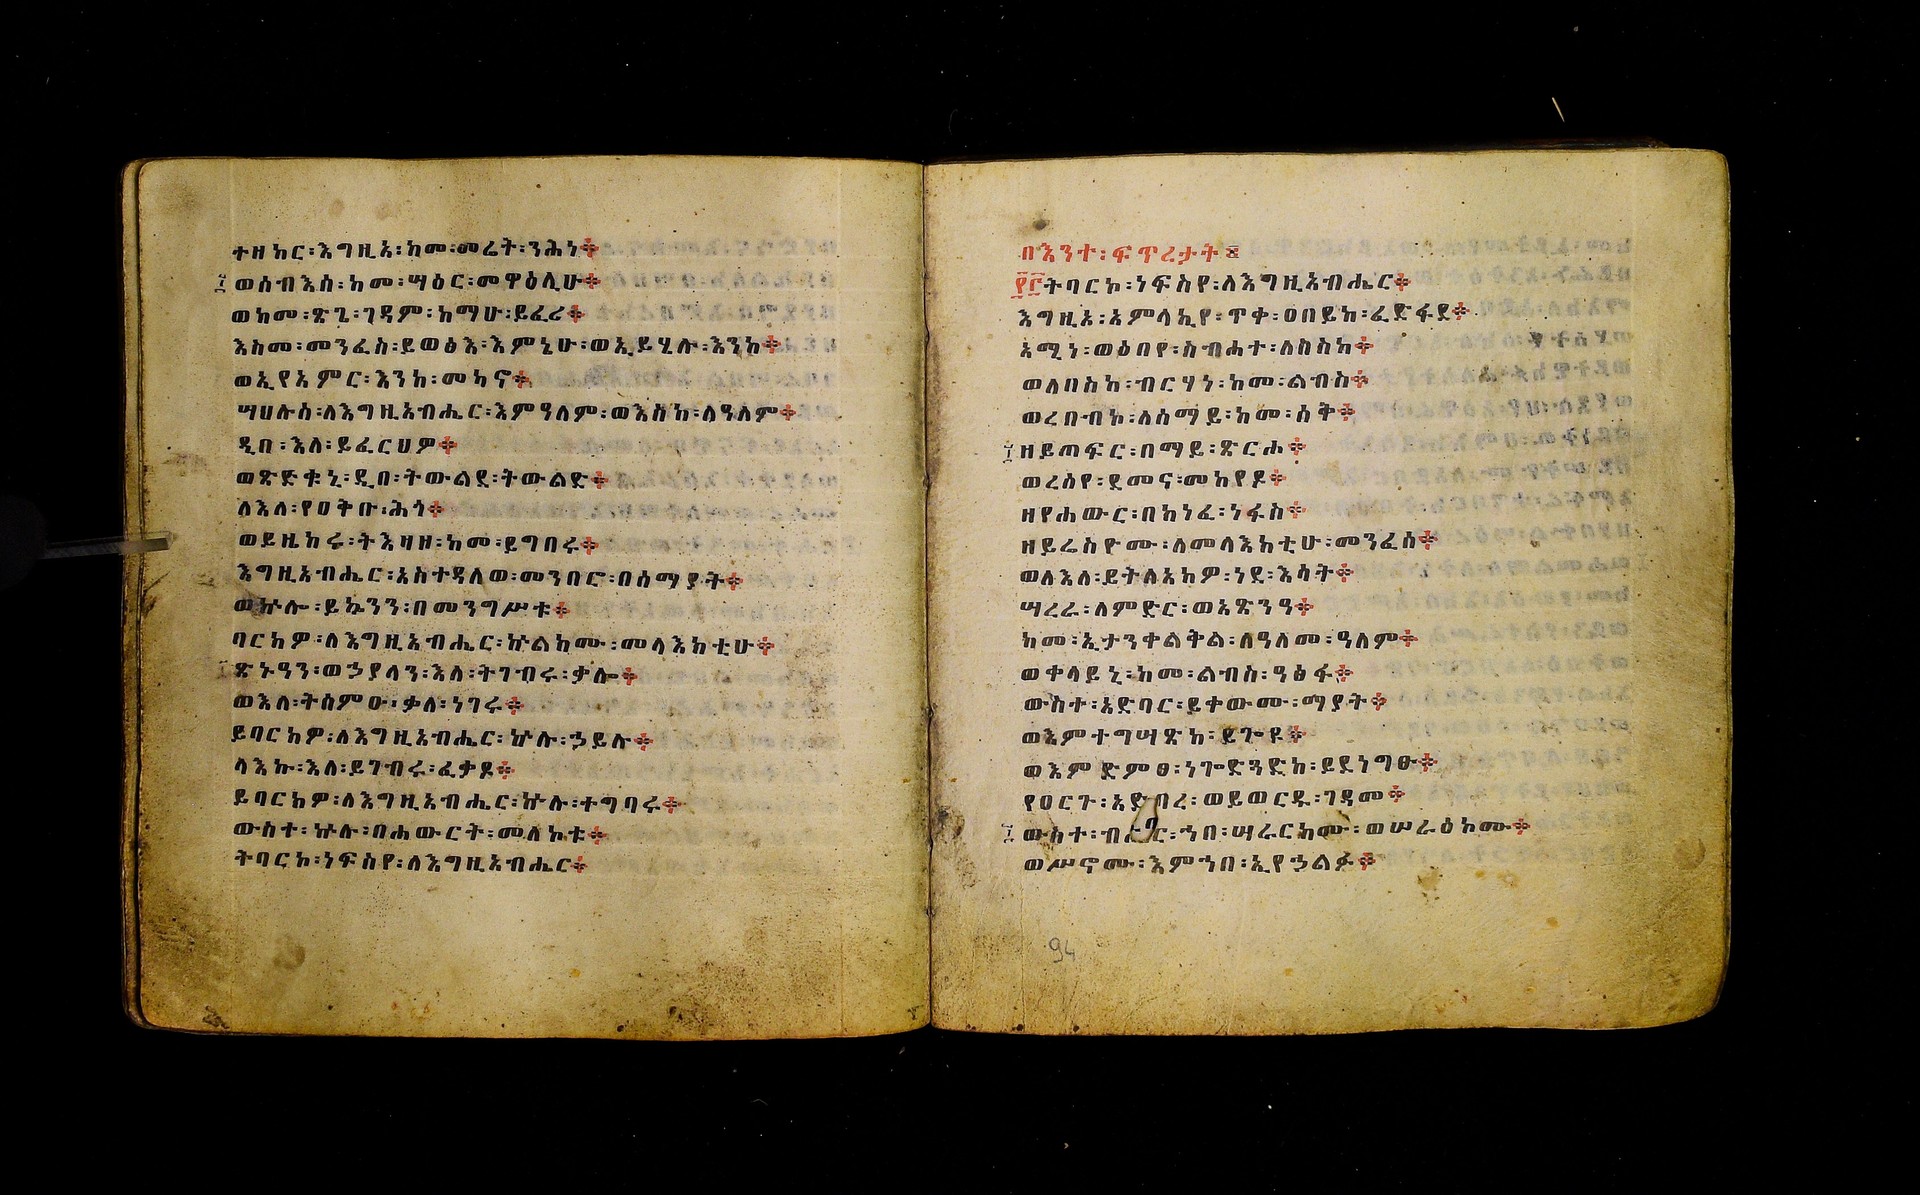 ተዘከር፡እግዚአ፡ከመ፡መሬት፡ንሕነ፨
ወሰብእሰ፡ከመ፡ሣዕር፡መዋዕሊሁ፨
ወከመ፡ጽጌ፡ገዳም፡ከማሁ፡ይፈሪ፨
እስመ፡መንፈስ፡ይወፅእ፡እምኔሁ፡ወኢይሄሉ፡እንከ፨
ወኢየአምር፡እንከ፡መካኖ፨
ሣህሉሰ፡ለእግዚአብሔር፡እምዓለም፡ወእስከ፡ለዓለም፨
ዲበ፡እለ፡ይፈርህዎ፨
ወጽድቁኒ፡ዲበ፡ትውልደ፡ትውልድ፨
ለእለ፡የዐቅቡ፡ሕጎ፨
ወይዚከሩ፡ትእዛዘ፡ከመ፡ይግበሩ፨
እግዚአብሔር፡አስተዳለወ፡መንበሮ፡በሰማያት፨
ወኵሎ፡ይኴንን፡በመንግሥቱ፨
ባርክዎ፡ለእግዚአብሔር፡ኵልክሙ፡መላእክቲሁ፨
ጽኑዓን፡ወኃያላን፡እለ፡ትገብሩ፡ቃሎ፨
ወእለ፡ትሰምዑ፡ቃለ፡ነገሩ፨
ይባርክዎ፡ለእግዚአብሔር፡ኵሉ፡ኃይሉ፨
ላእኩ፡እለ፡ይገብሩ፡ፈቃዶ፨
ይባርክዎ፡ለእግዚአብሔር፡ኵሉ፡ተግባሩ፨
ውስተ፡ኵሉ፡በሐውርት፡መለኮቱ፨
ትባርኮ፡ነፍስየ፡ለእግዚአብሔር፨
በእንተ፡ፍጥረታት፤
፻፫ትባርኮ፡ነፍስየ፡ለእግዚአብሔር፨
እግዚእ፡አምላኪየ፡ጥቀ፡ዐበይከ፡ፈድፋደ፨
አሚነ፡ወዕበየ፡ስብሐተ፡ለበስከ፨
ወለበስከ፡ብርሃነ፡ከመ፡ልብስ፨
ወረበብኮ፡ለሰማይ፡ከመ፡ሰቅ፨
ዘይጠፍር፡በማይ፡ጽርሐ፨
ወረሰየ፡ደመና፡መከየዶ፨
ዘየሐውር፡በክነፈ፡ነፋስ፨
ዘይሬስዮሙ፡ለመላእክቲሁ፡መንፈሰ፨
ወለእለ፡ይትለአክዎ፡ነደ፡እሳት፨
ሣረራ፡ለምድር፡ወአጽንዓ፨
ከመ፡ኢታንቀልቅል፡ለዓለመ፡ዓለም፨
ወቀላይኒ፡ከመ፡ልብስ፡ዓፅፋ፨
ውስተ፡አድባር፡ይቀውሙ፡ማያት፨
ወእምተግሣጽከ፡ይጐዩ፨
ወእምድምፀ፡ነጐድጓድከ፡ይደነግፁ፨
የዐርጉ፡አድባረ፡ወይወርዱ፡ገዳመ፨
ውስተ፡ብሔር፡ኀበ፡ሣራርኮሙ፡ወሠራዕኮሙ፨
ወሥኖሙ፡እምኀበ፡ኢየኃልፉ፨
94